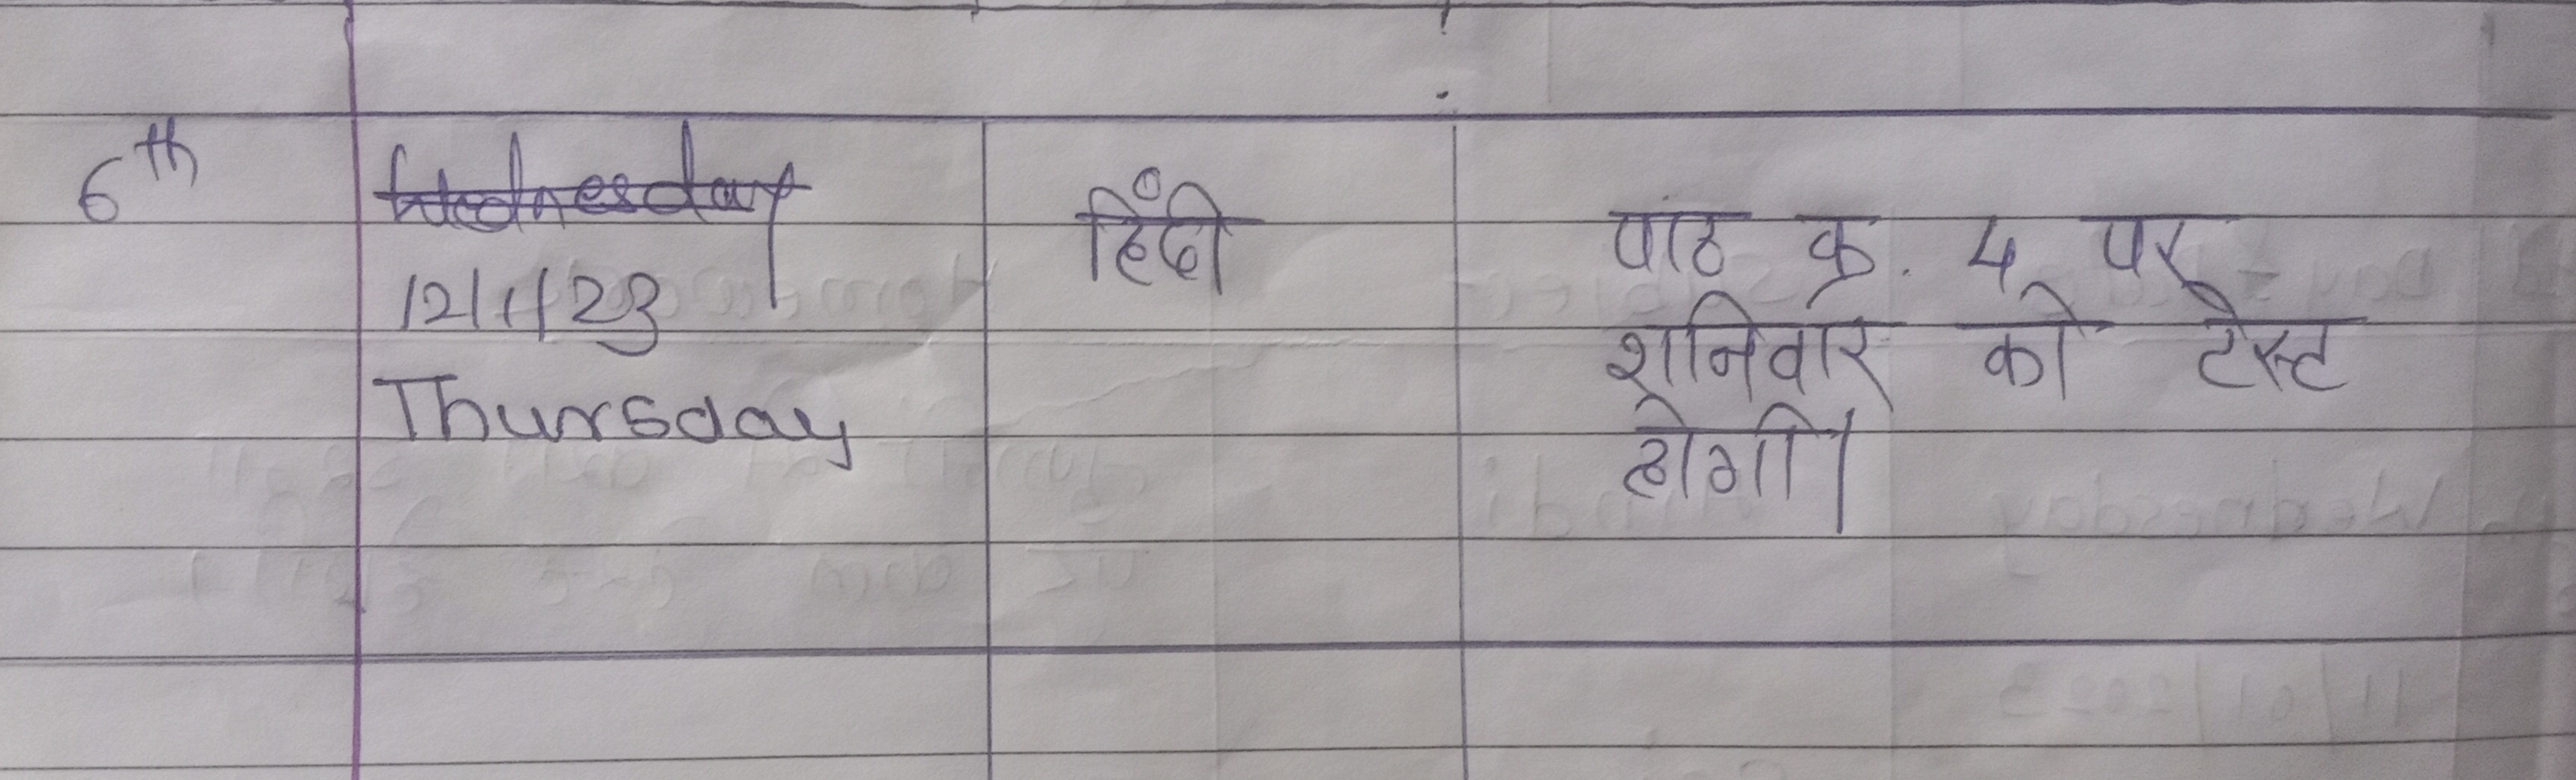 6th
Wednesday
12/1/23
Thursday
हिंदी
पाठ क्र. 4 पर
शनिवार को टेस्ट
होगी।